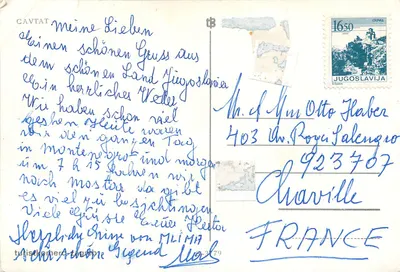 CAVTAT
Meine Lieben
Einen schönen Gruss aus
dem schönen Land Jugoslavia
Ein herrliches
Wir haben schon viel
gesehen Heute waren
wir den ganzen Tag
in Montenegro und morgen
um 7 h 15 fahren wir
nach Mostar da gibt
es viel zu besichtigen
Viele Grüsse
von MLIMA
schöne Gegend
16.50
JUGOSLAVIJA
M. et Mme Otto Haber
403 Av. Roger Salengro
923707
Chaville
FRANCE